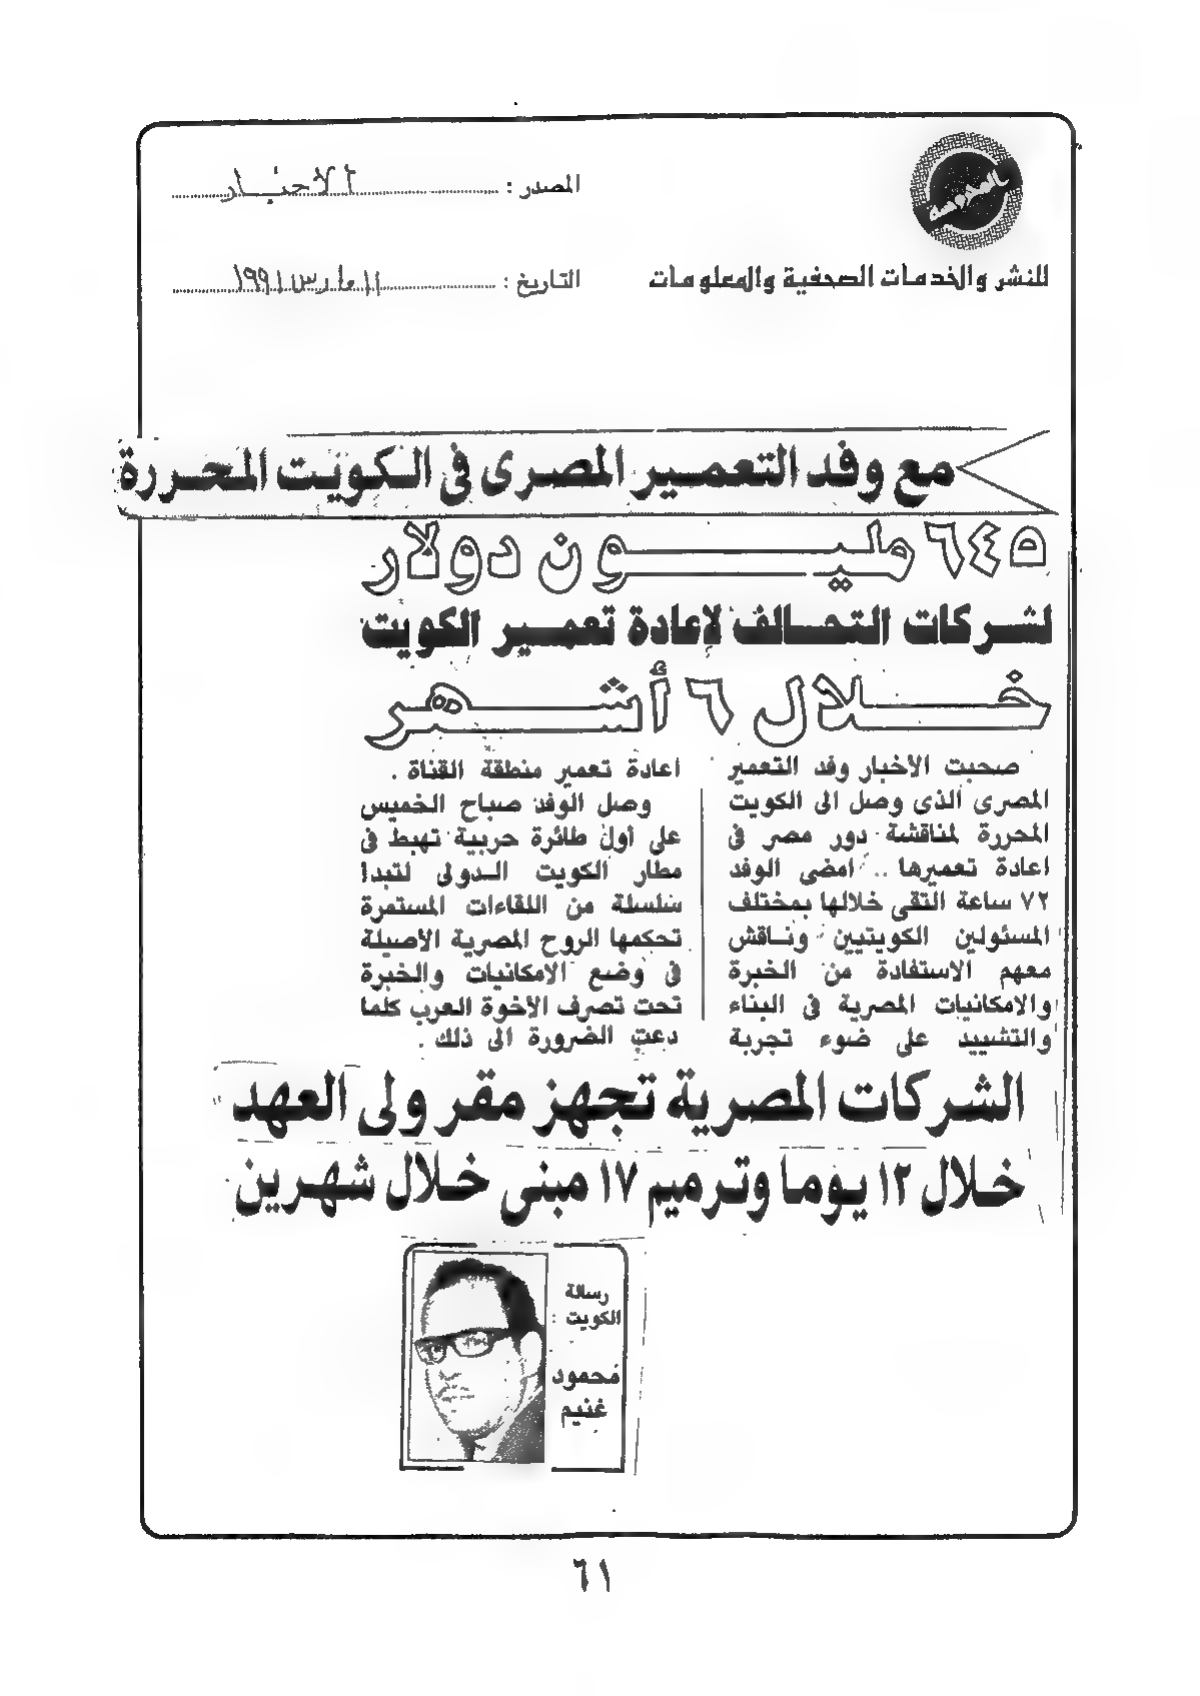 المحروسة
المصدر : الاخبار
للنشر والخدمات الصحفية والمعلومات
التاريخ : ١١ مارس ١٩٩١
مع وفد التعمير المصرى فى الكويت المحررة
٦٤٥ مليون دولار
لشركات التحالف لإعادة تعمير الكويت
خلال ٦ أشهر
صحبت الأخبار وفد التعمير
المصرى الذى وصل الى الكويت
المحررة لمناقشة دور مصر فى
اعادة تعميرها .. امضى الوفد
٧٢ ساعة التقى خلالها بمختلف
المسئولين الكويتيين وناقش
معهم الاستفادة من الخبرة
والامكانيات المصرية فى البناء
والتشييد على ضوء تجربة
اعادة تعمير منطقة القناة .
وصل الوفد صباح الخميس
على أول طائرة حربية تهبط فى
مطار الكويت الدولى لتبدا
سلسلة من اللقاءات المستمرة
تحكمها الروح المصرية الأصيلة
فى وضع الامكانيات والخبرة
تحت تصرف الأخوة العرب كلما
دعت الضرورة الى ذلك .
الشركات المصرية تجهز مقر ولى العهد
خلال ١٢ يوما وترميم ١٧ مبنى خلال شهرين
رسالة
الكويت :
محمود
غنيم
٦١